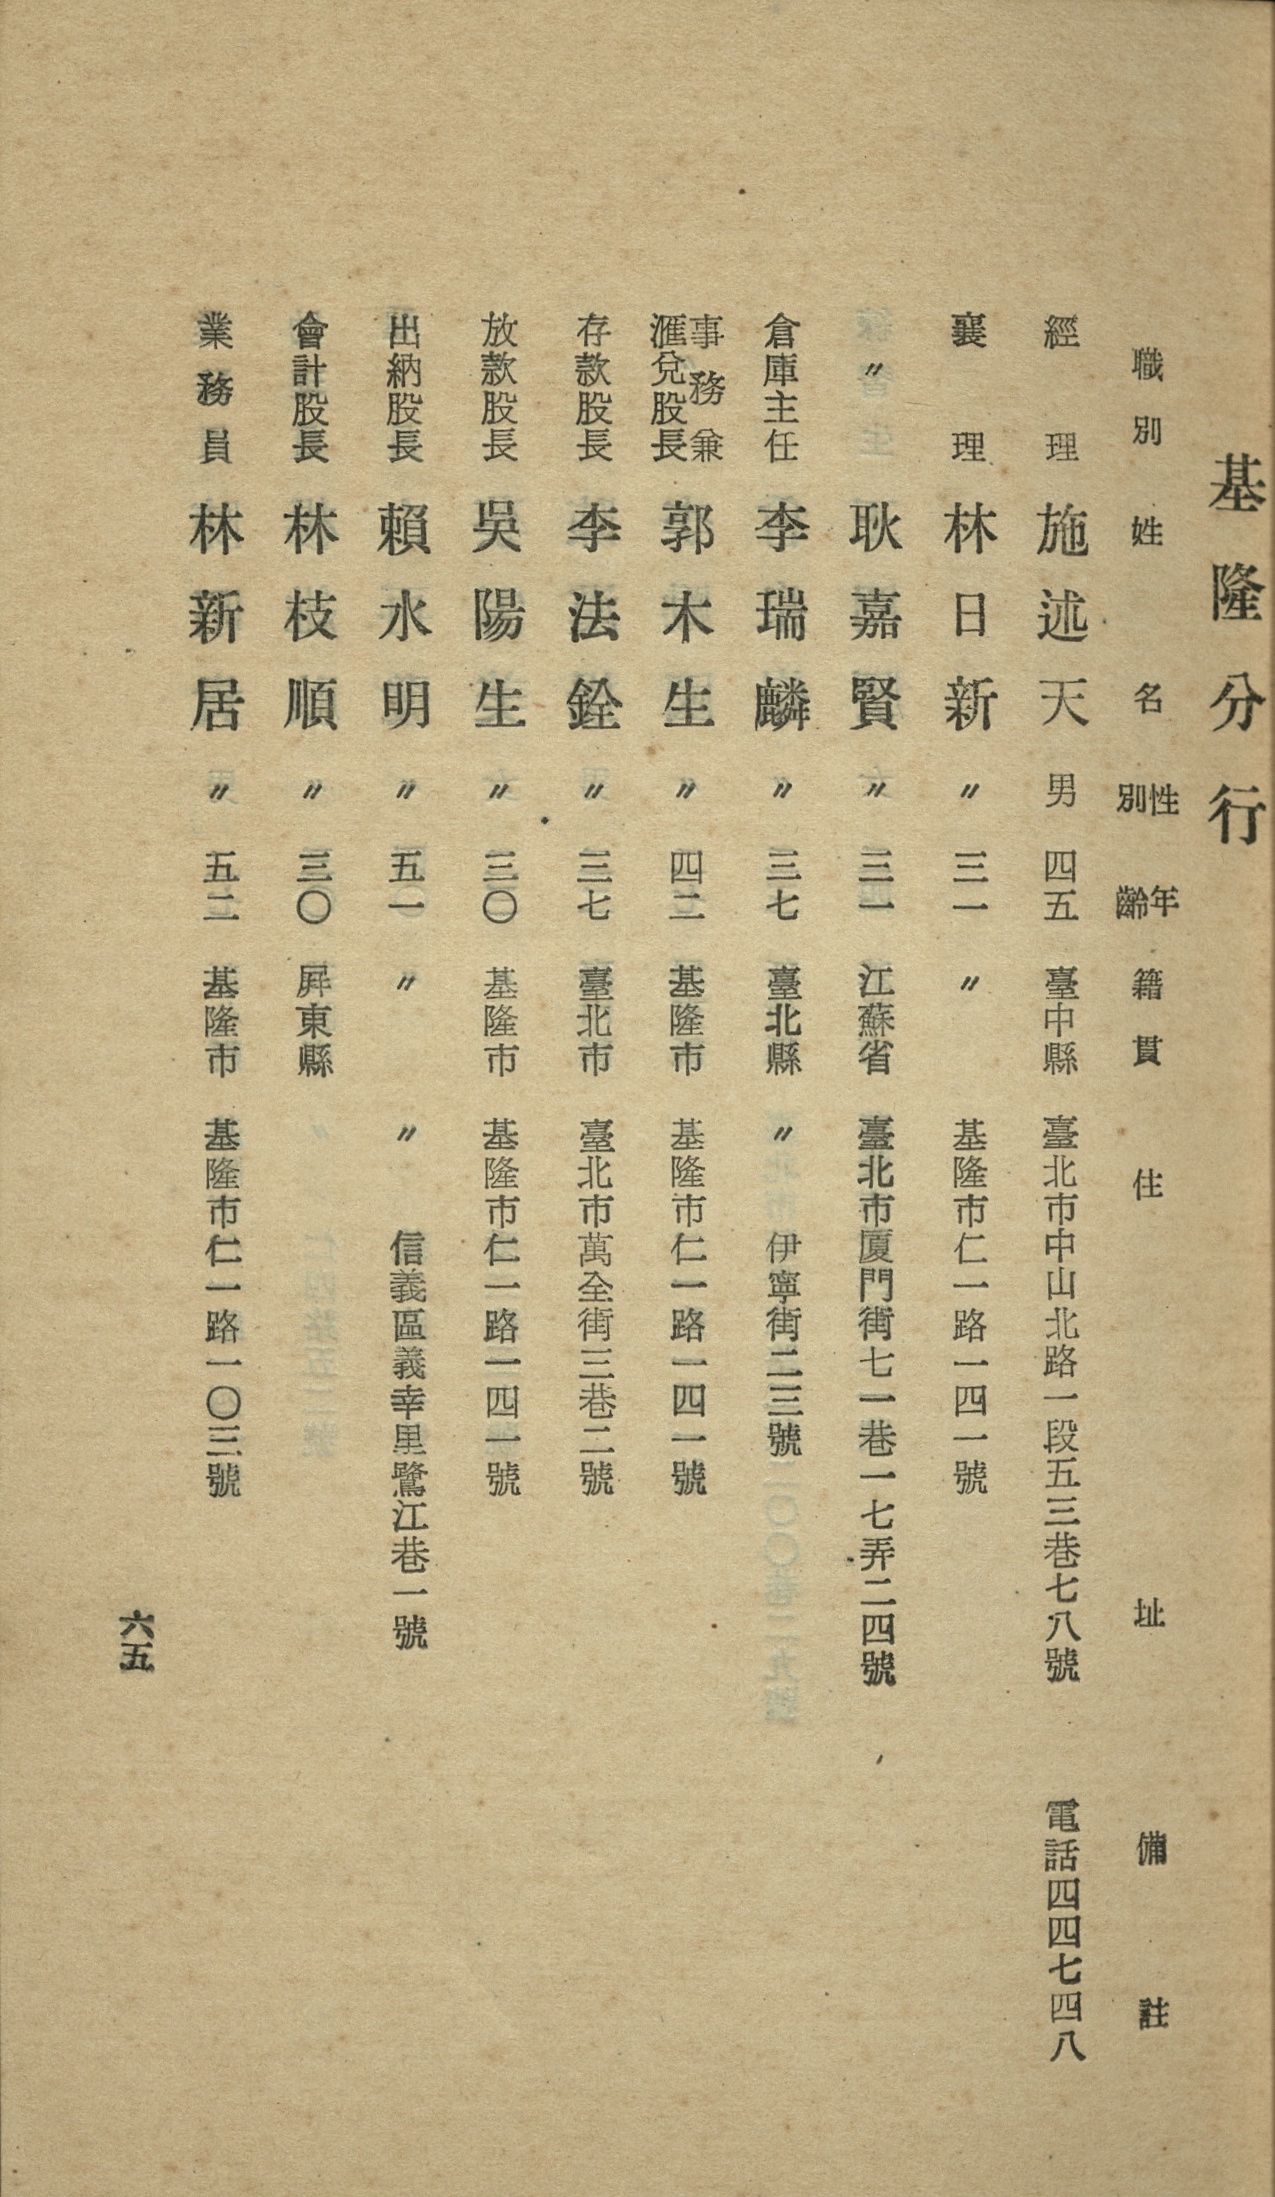 基隆分行
職別 姓名 性別 年齡 籍貫 住址 備註
經理 施述天 男 四五 臺中縣 臺北市中山北路一段五三巷七八號 電話四四七四八
襄理 林日新 〃 三一 〃 基隆市仁一路一四一號
〃 耿嘉賢 〃 三一 江蘇省 臺北市厦門街七一巷一七弄二四號
倉庫主任 李瑞麟 〃 三七 臺北縣 〃 伊寧街二三號
事務兼滙兌股長 郭木生 〃 四二 基隆市 基隆市仁一路一四一號
存款股長 李法銓 〃 三七 臺北市 臺北市萬全街三巷二號
放款股長 吳陽生 〃 三〇 基隆市 基隆市仁一路一四一號
出納股長 賴水明 〃 五一 〃 〃 信義區義幸里鷺江巷一號
會計股長 林枝順 〃 三〇 屛東縣
業務員 林新居 〃 五二 基隆市 基隆市仁一路一〇三號
六五